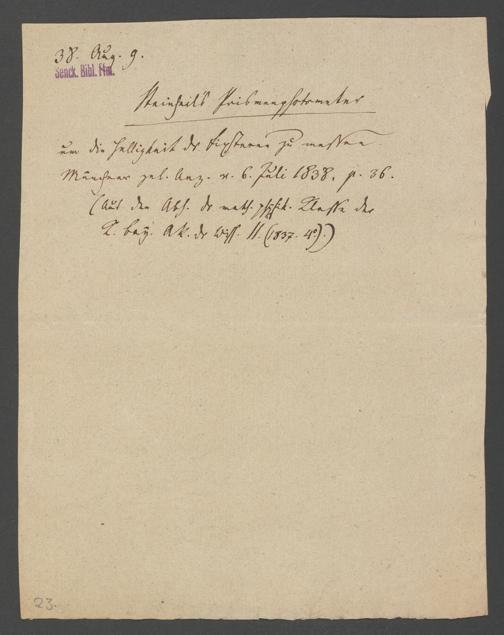 38. Aug. 9.
Senck. Bibl. Ffm.
Steinheil's Prismenphotometer
um die Helligkeit der Fixsterne zu messen
Münchner gel. Anz. v. 6. Juli 1838. p. 36.
(Aus den Abh. der math. physik. Klasse der
K. bay. Ak. der Wiss. II. (1837. 4º).)
23.